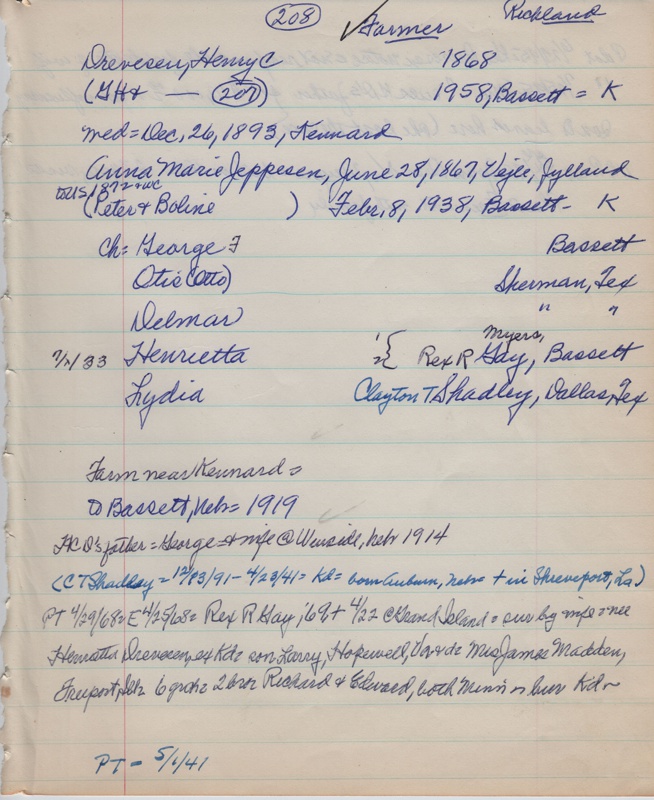 208 ✓ Farmer Richland
Drevesen, Henry C 1868
(GH+ — 207) 1958, Bassett = K
med = Dec, 26, 1893, Kennard
Anna Marie Jeppesen, June 28, 1867, Vejle, Jylland
to US, 1872 +WC
(Peter + Boline ) Febr, 8, 1938, Bassett - K
Ch = George F Bassett
Otis (Otto) Sherman, Tex
Delmar " "
Myers,
7/2/33 Henrietta Rex R Gay, Bassett
Lydia Clayton T Shadley, Dallas, Tex
Farm near Kennard =
to Bassett, Nebr = 1919
HCD's father = George = + wife @ Winside, Nebr 1914
(C T Shadley = 12/23/91 - 4/23/41 = Kd = born Auburn, Nebr + in Shreveport, La)
PT 4/29/68 = E 4/25/68 = Rex R Gay, '69 + 4/22 Grand Island = sur by wife = nee
Henrietta Drevesen, ex Kd = son Larry, Hopewell, Va + d = Mrs James Madden,
Freeport, Ill = 6 grch = 2 bros Richard & Edward, both Minn = bur Kd -
PT - 5/1/41